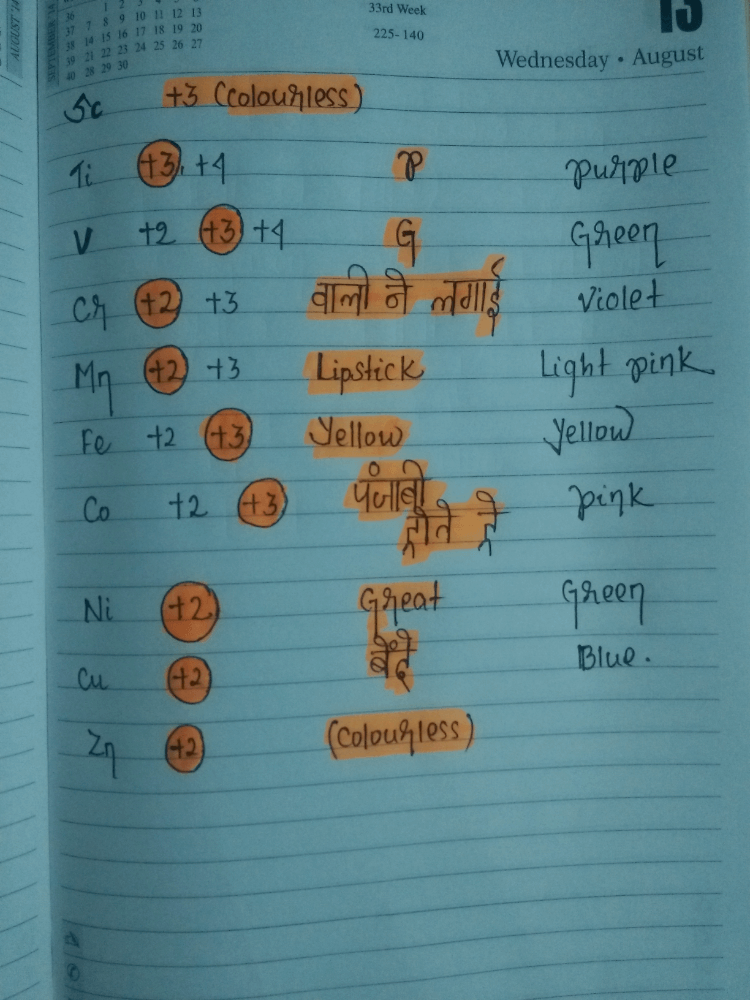 AUGUST 14
SEPTEMBER 14
36 1 2 3 4 5 6
37 7 8 9 10 11 12 13
38 14 15 16 17 18 19 20
39 21 22 23 24 25 26 27
40 28 29 30
33rd Week
225-140
13
Wednesday • August
Sc +3 (colourless)
Ti +3, +4 P purple
V +2 +3 +4 G Green
Cr +2 +3 वाली ने लगाई violet
Mn +2 +3 Lipstick Light pink
Fe +2 +3 Yellow Yellow
Co +2 +3 पंजाबी pink
होते है
Ni +2 Great Green
Cu +2 बंदे Blue.
Zn +2 (colourless)